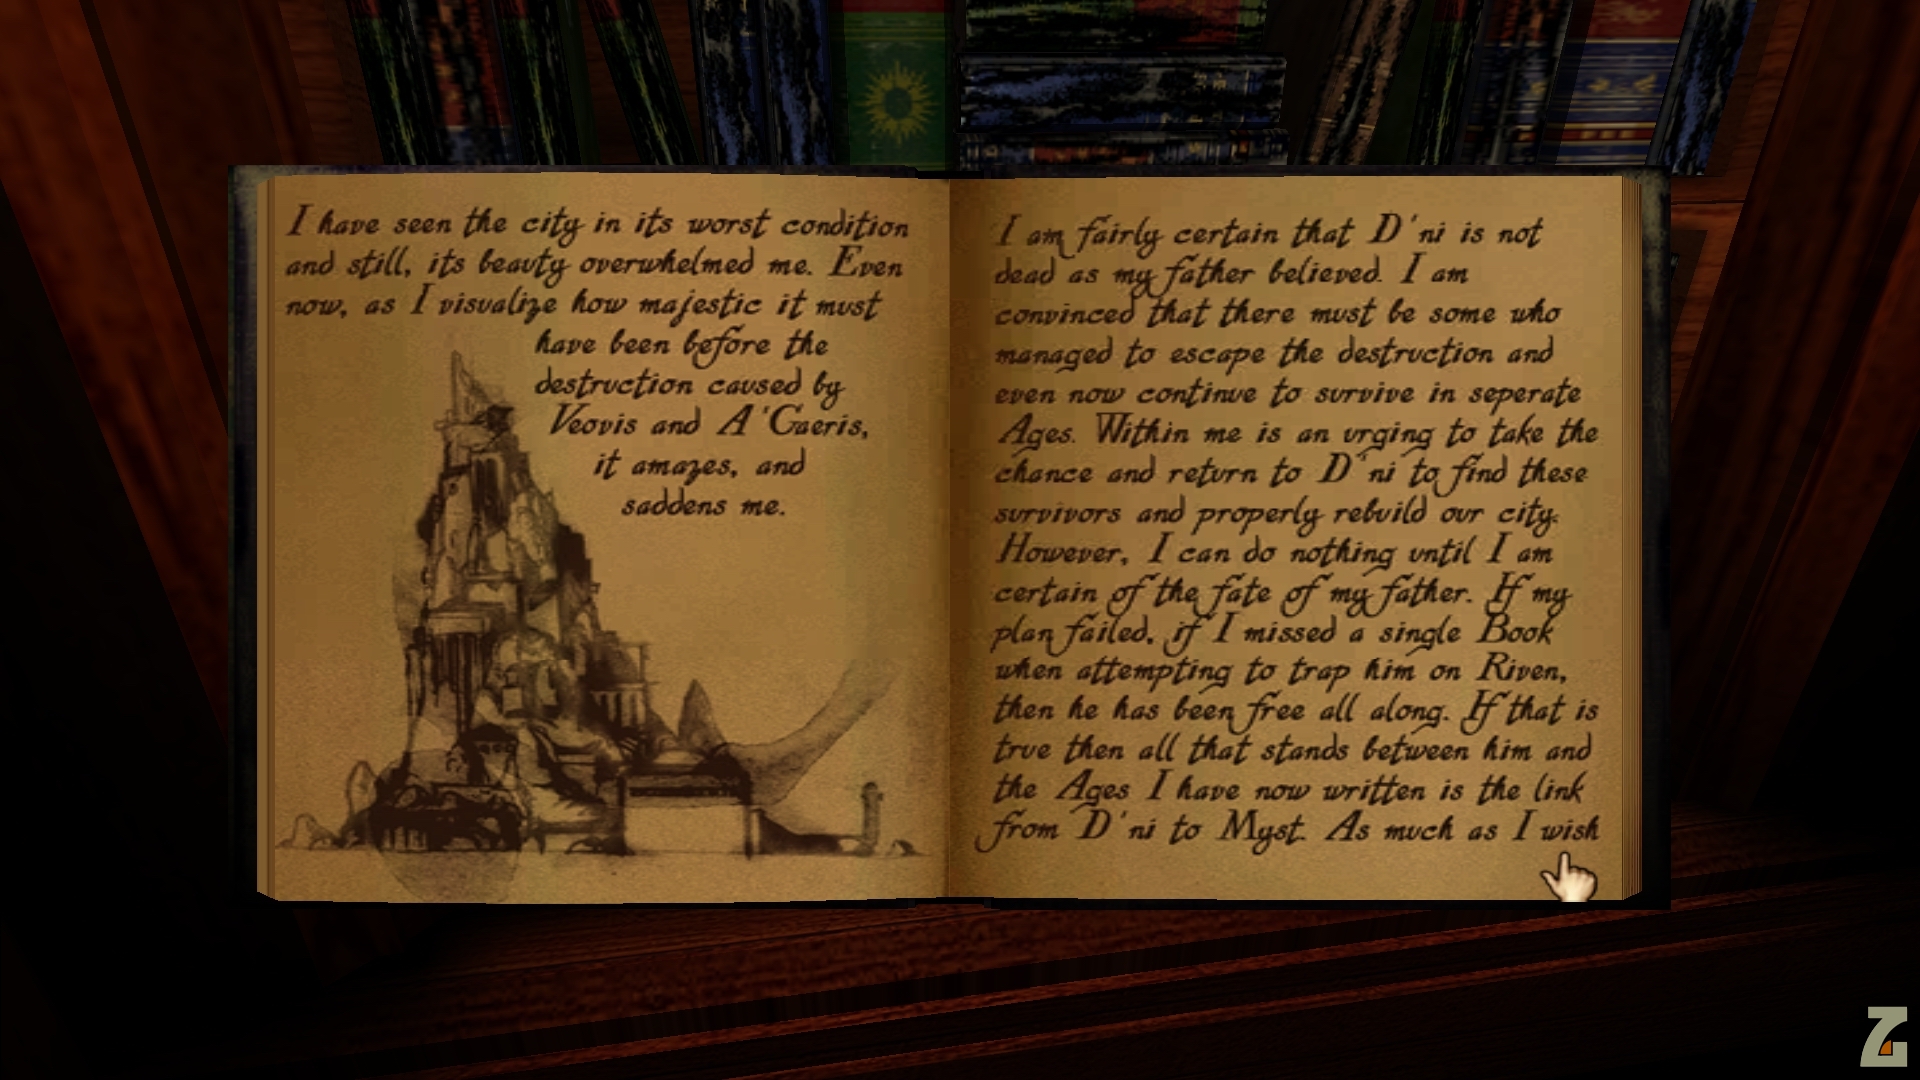 I have seen the city in its worst condition
and still, its beauty overwhelmed me. Even
now, as I visualize how majestic it must
have been before the
destruction caused by
Veovis and A'Gaeris,
it amazes, and
saddens me.
I am fairly certain that D'ni is not
dead as my father believed. I am
convinced that there must be some who
managed to escape the destruction and
even now continue to survive in seperate
Ages. Within me is an urging to take the
chance and return to D'ni to find these
survivors and properly rebuild our city.
However, I can do nothing until I am
certain of the fate of my father. If my
plan failed, if I missed a single Book
when attempting to trap him on Riven,
then he has been free all along. If that is
true then all that stands between him and
the Ages I have now written is the link
from D'ni to Myst. As much as I wish